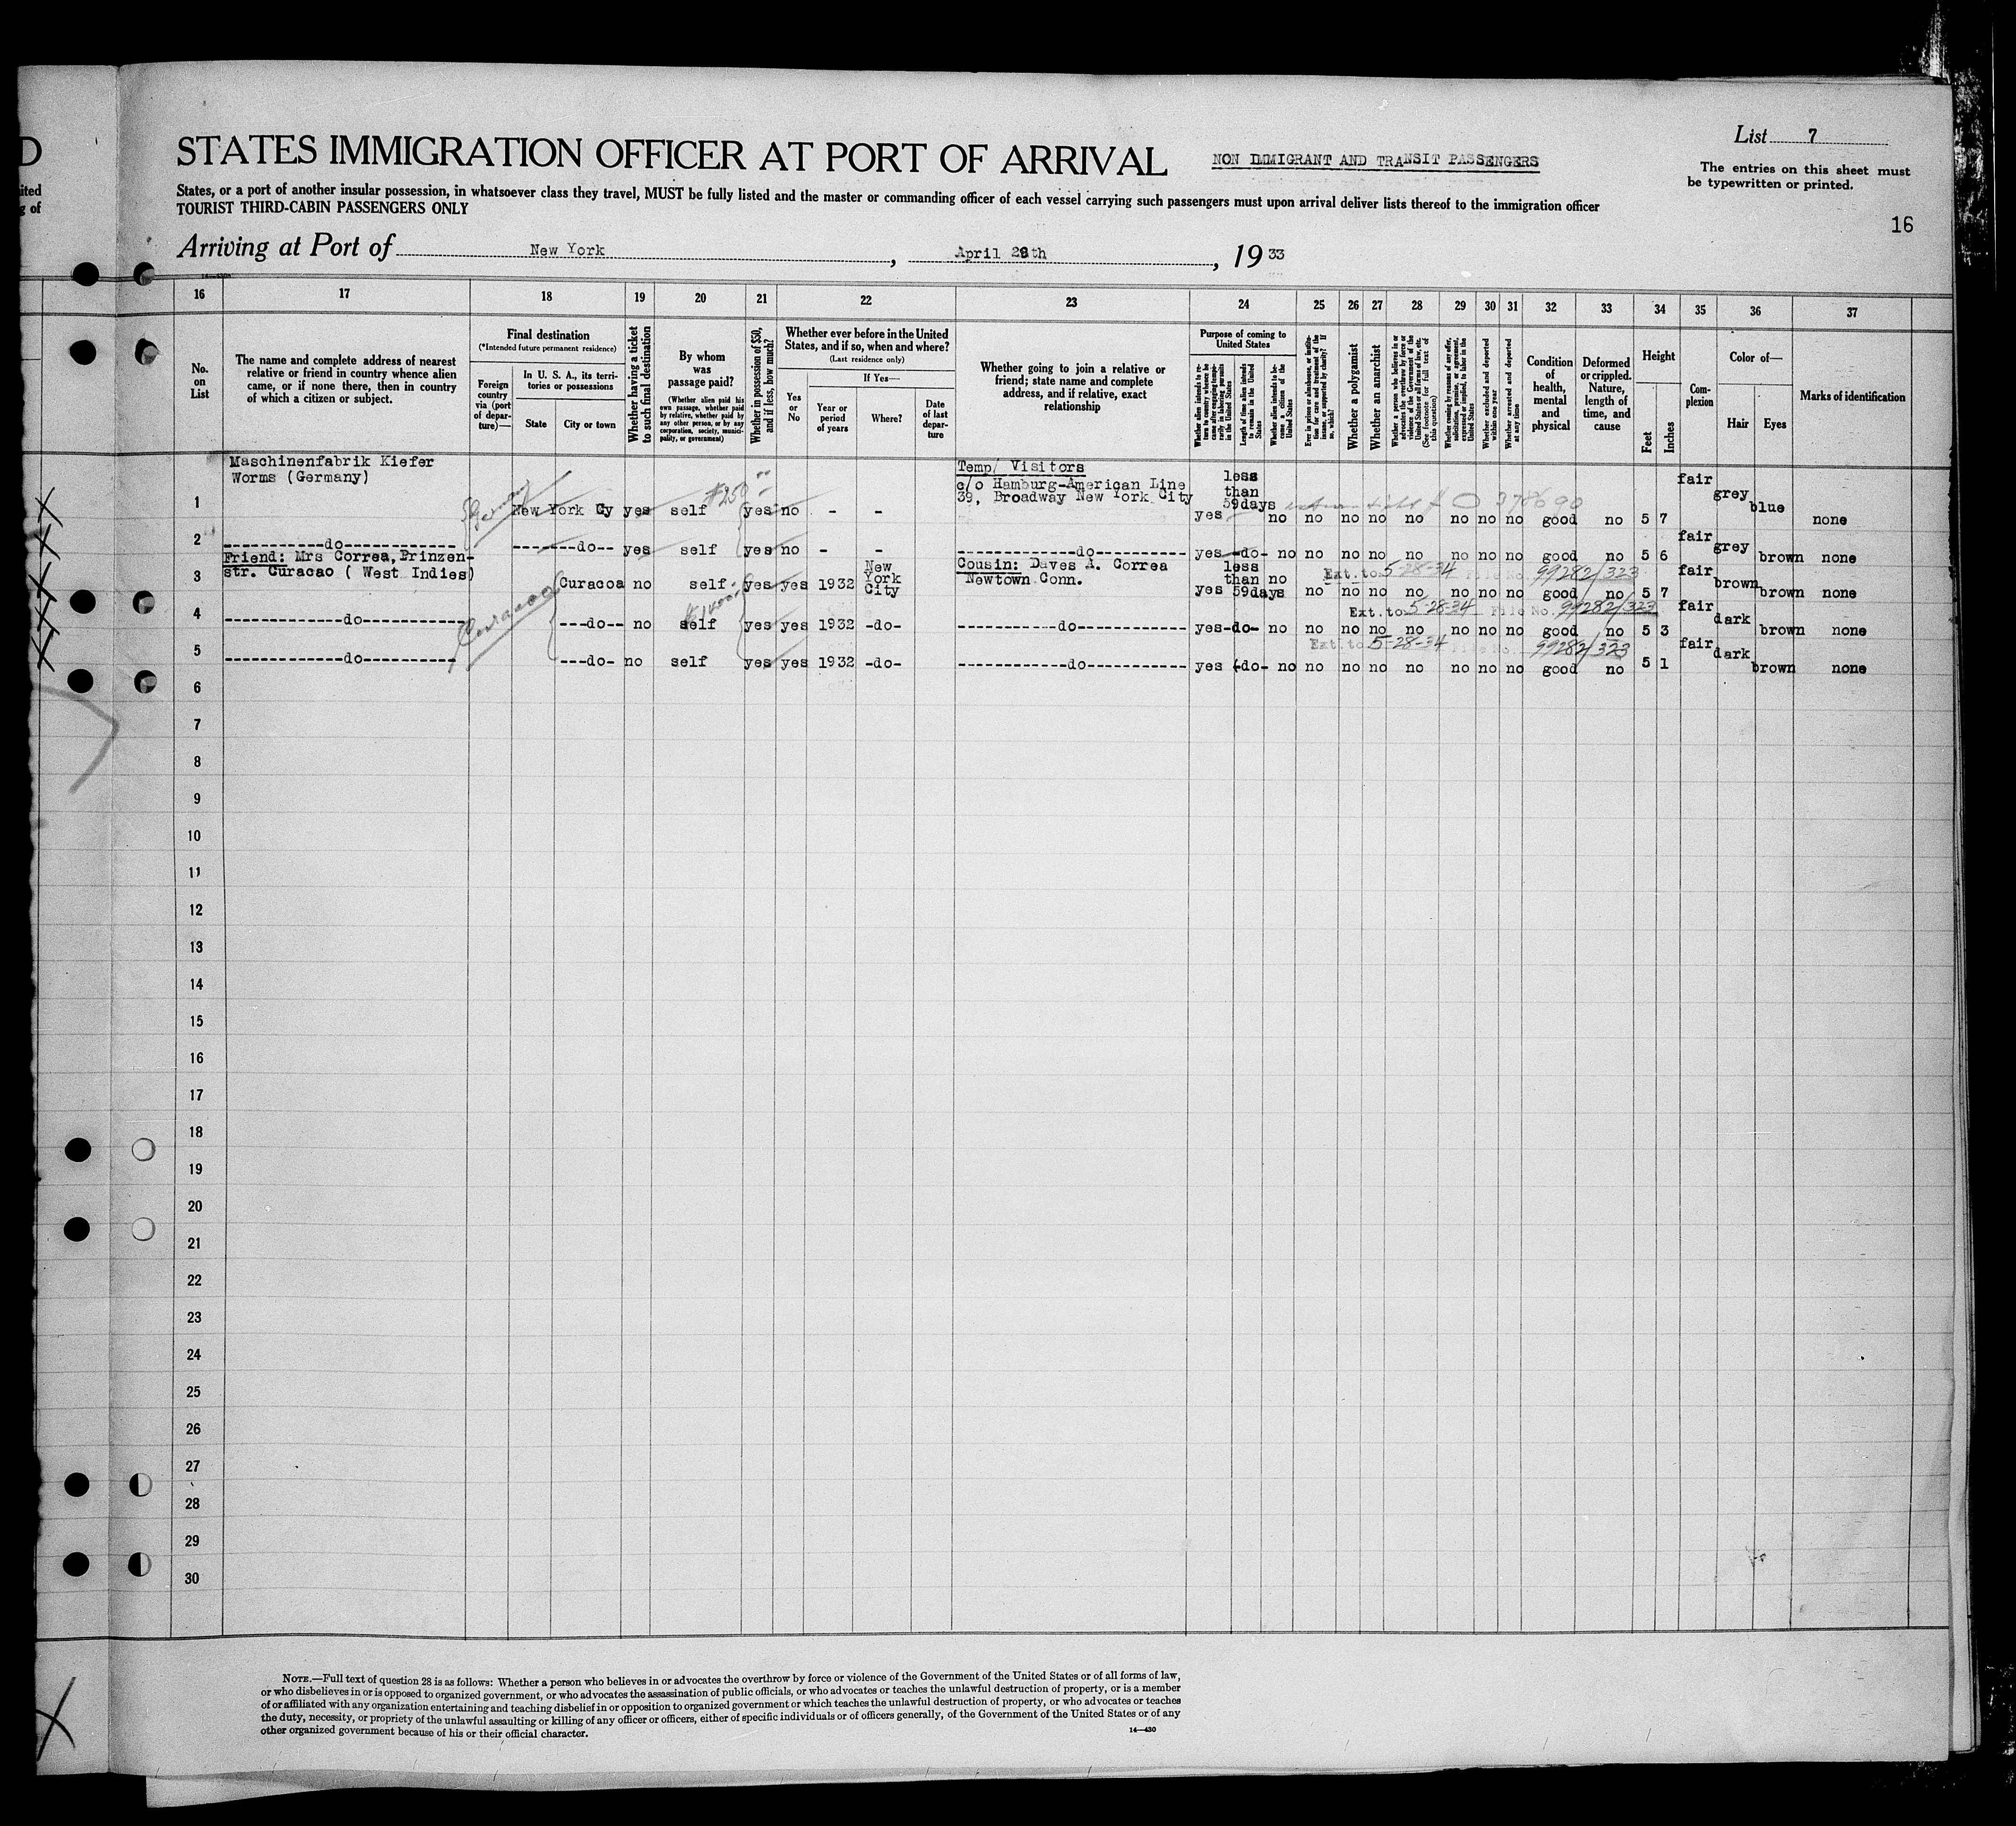 D
ited
g of
List 7
STATES IMMIGRATION OFFICER AT PORT OF ARRIVAL
NON IMMIGRANT AND TRANSIT PASSENGERS
The entries on this sheet must
be typewritten or printed.
States, or a port of another insular possession, in whatsoever class they travel, MUST be fully listed and the master or commanding officer of each vessel carrying such passengers must upon arrival deliver lists thereof to the immigration officer
TOURIST THIRD-CABIN PASSENGERS ONLY
16
Arriving at Port of New York, April 28th, 1933
16 17 18 19 20 21 22 23 24 25 26 27 28 29 30 31 32 33 34 35 36 37
No.
on
List
The name and complete address of nearest
relative or friend in country whence alien
came, or if none there, then in country
of which a citizen or subject.
Final destination
(*Intended future permanent residence)
Foreign
country
via (port
of depar-
ture)—
In U. S. A., its terri-
tories or possessions
State
City or town
Whether having a ticket
to such final destination
By whom
was
passage paid?
(Whether alien paid his
own passage, whether paid
by relative, whether paid by
any other person, or by any
corporation, society, munici-
pality, or government)
Whether in possession of $50,
and if less, how much?
Whether ever before in the United
States, and if so, when and where?
(Last residence only)
Yes
or
No
If Yes—
Year or
period
of years
Where?
Date
of last
depar-
ture
Whether going to join a relative or
friend; state name and complete
address, and if relative, exact
relationship
Purpose of coming to
United States
Whether alien intends to re-
turn to country whence he
came after engaging tempo-
rarily in laboring pursuits
in the United States
Length of time alien intends
to remain in the United
States
Whether alien intends to be-
come a citizen of the
United States
Ever in prison or almshouse, or institu-
tion for care and treatment of the
insane, or supported by charity? If
so, which?
Whether a polygamist
Whether an anarchist
Whether a person who believes in or
advocates the overthrow by force or
violence of the Government of the
United States or all forms of law, etc.
(See footnote for full text of
this question)
Whether coming by reasons of any offer,
solicitation, promise, or agreement,
expressed or implied, to labor in the
United States
Whether excluded and deported
within one year
Whether arrested and deported
at any time
Condition
of
health,
mental
and
physical
Deformed
or crippled.
Nature,
length of
time, and
cause
Height
Feet
Inches
Com-
plexion
Color of—
Hair
Eyes
Marks of identification
Maschinenfabrik Kiefer
Worms (Germany)
Temp/ Visitors
c/o Hamburg-American Line
39, Broadway New York City
less
than
59days
1 Germany New York Cy yes self $250 yes no - - yes no no no no no no no no good no 5 7 fair grey blue none
2 ------------do------------- -------do-- yes self yes no - - -------------do---------- yes -do- no no no no no no no no good no 5 6 fair grey brown none
Friend: Mrs Correa, Prinzen-
str. Curacao ( West Indies)
Cousin: Daves A. Correa
Newtown Conn.
less
than
59days
Ext. to 5-28-34 File No. 99282/323
3 Curacao Curacoa no self yes yes 1932 New York City yes no no no no no no no no good no 5 7 fair brown brown none
Ext. to 5-28-34 File No. 99282/323
4 --------------do------------ ---do-- no self yes yes 1932 -do- ------------do------------ yes -do- no no no no no no no no good no 5 3 fair dark brown none
Ext. to 5-28-34 File No. 99282/323
5 --------------do----------- ---do- no self yes yes 1932 -do- -------------do----------- yes -do- no no no no no no no no good no 5 1 fair dark brown none
6
7
8
9
10
11
12
13
14
15
16
17
18
19
20
21
22
23
24
25
26
27
28
29
30
NOTE.—Full text of question 28 is as follows: Whether a person who believes in or advocates the overthrow by force or violence of the Government of the United States or of all forms of law,
or who disbelieves in or is opposed to organized government, or who advocates the assassination of public officials, or who advocates or teaches the unlawful destruction of property, or is a member
of or affiliated with any organization entertaining and teaching disbelief in or opposition to organized government or which teaches the unlawful destruction of property, or who advocates or teaches
the duty, necessity, or propriety of the unlawful assaulting or killing of any officer or officers, either of specific individuals or of officers generally, of the Government of the United States or of any
other organized government because of his or their official character.
14—430